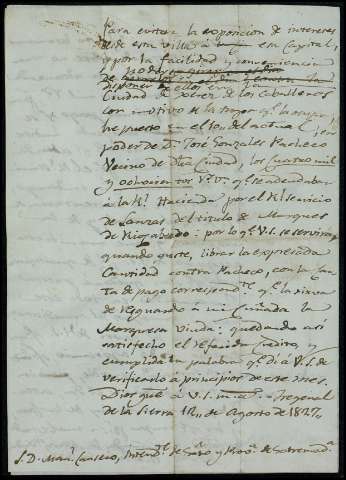 Para evitar la exposicion de intereses
desde esta villa á esa Capital,
y por la facilidad y conveniencia
disponer de ellos en la
Ciudad de Xerez de los Caballeros
con motivo de la
he puesto en el dia del actual en
poder de Dn. José Gonzales Pacheco
Vecino de dha Ciudad, los cuatro mil
y ochocientos rs. vn. qe. se adeudaban
á la Rl. Hacienda por el Rl. servicio
de Lanzas del titulo de Marques
de Riocabado: por lo qe. V.S. se servirá
quando guste, librar la expresada
Cantidad contra Pacheco, con la Car-
ta de pago correspondte. qe. la sirva
de resguardo á mi Cuñada la
Marquesa Viuda: quedando asi
satisfecho el referido Credito, y
cumplida la palabra qe. di á V.S. de
verificarlo á principios de este mes.
Dios gue. á V.S. m. as. Fregenal
de la Sierra 12 de Agosto de 1827
S. D. Manl. Canseco, Intendte. de y Prova. de Extremada.